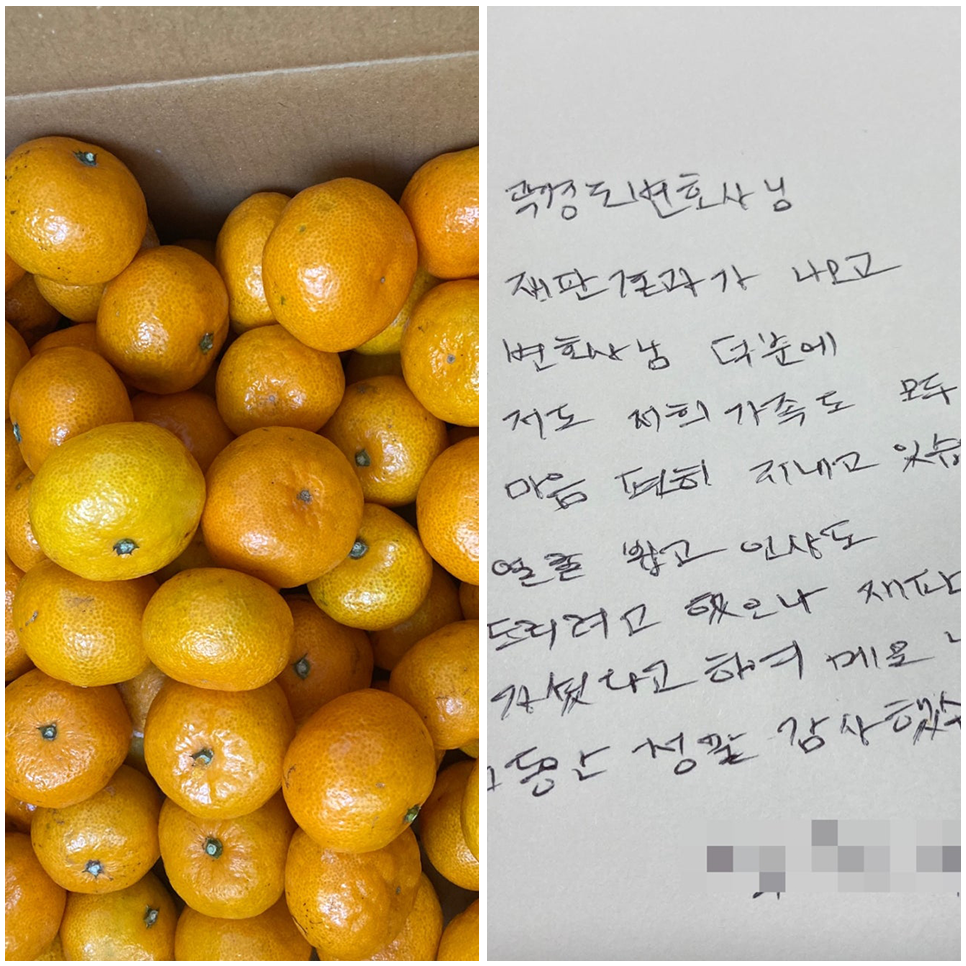 곽경도변호사님
재판결과가 나오고
변호사님 덕분에
저도 저희 가족도 모두
마음 편히 지내고 있습
얼굴 뵙고 인사도
드리려고 했으나 재판
가셨다고 하여 메모
동안 정말 감사했습